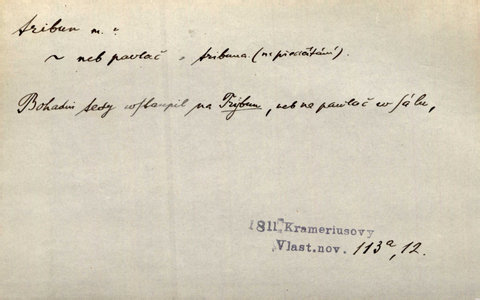 tribun m. :
~ neb pavlač = tribuna (na předčítání).
Bohadin tedy wstaupil na Trybun, neb na pawlač w sálu,
1811 Krameriusovy
Vlast.nov. 113a, 12.